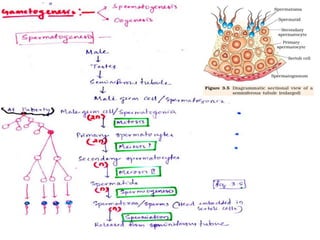 Gametogenesis :-
Spermatogenesis
Oogenesis
Spermatogenesis
Male
Testes
Seminiferous tubule
Male germ cell / Spermatogonia
At Puberty
Male germ cell / Spermatogonia
(2n)
Mitosis
Primary spermatocytes
(2n)
Meiosis I
Secondary spermatocytes
(n)
Meiosis II
Spermatids
(n)
Spermiogenesis
fig 3.5
Spermatozoa / Sperms (Head embedded in
Sertoli cells)
(n)
Spermiation
Released from seminiferous tubule
Spermatozoa
Spermatid
Secondary
spermatocyte
Primary
spermatocyte
Sertoli cell
Spermatogonium
Figure 3.5 Diagrammatic sectional view of a
seminiferous tubule (enlarged)